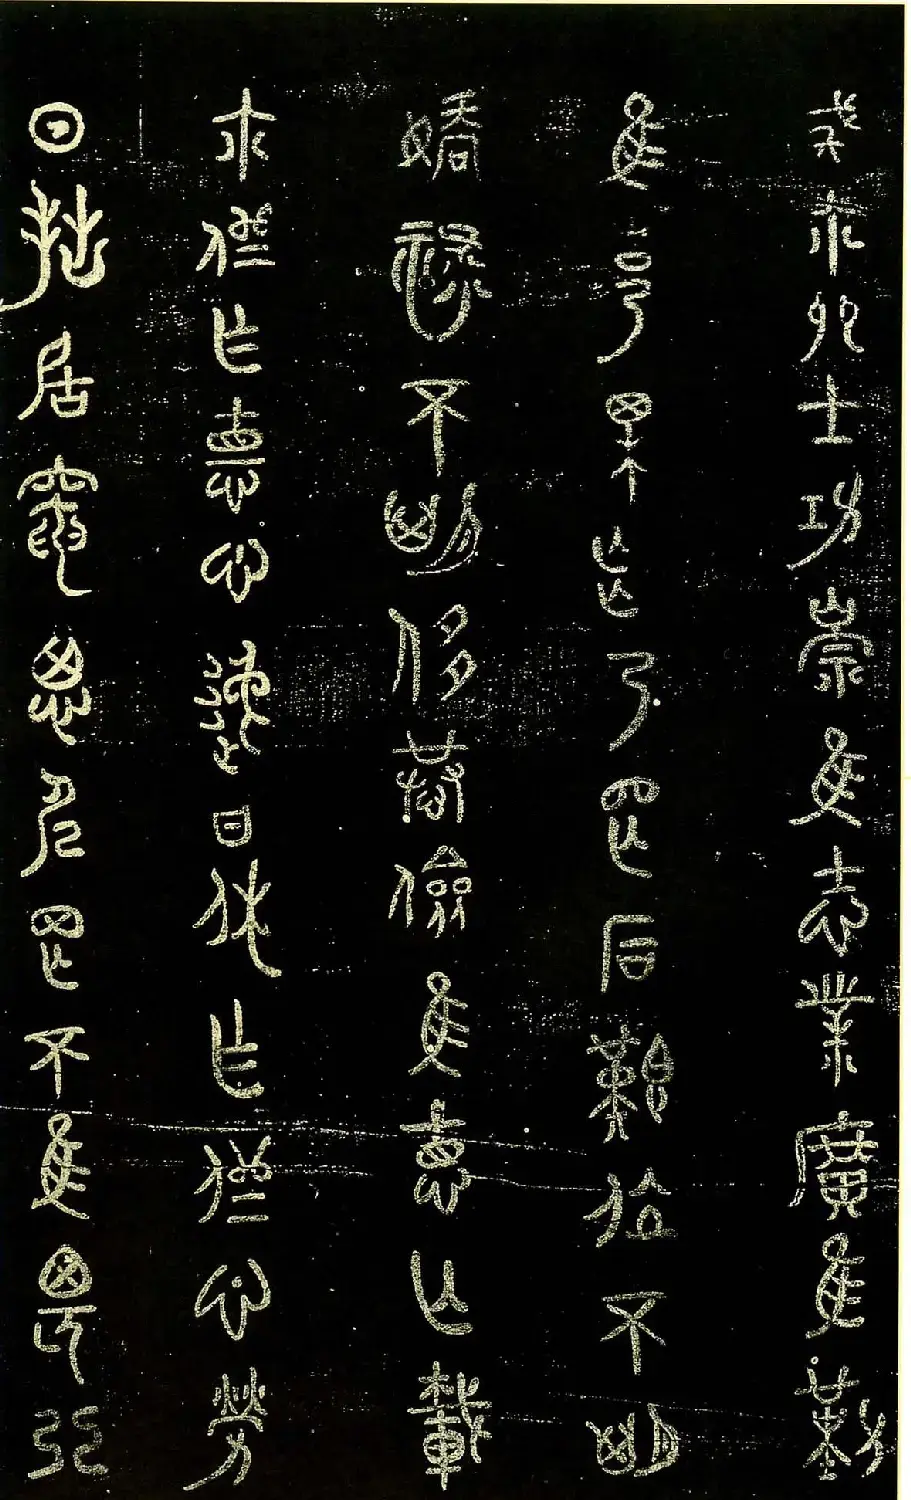 戒尒卿士功崇惟志業廣惟勤
惟克果斷乃罔后艱位不期
驕祿不期侈恭儉惟悳亡載
尒偽作悳心逸日休作偽心勞
日拙居寵思危罔不惟畏弗